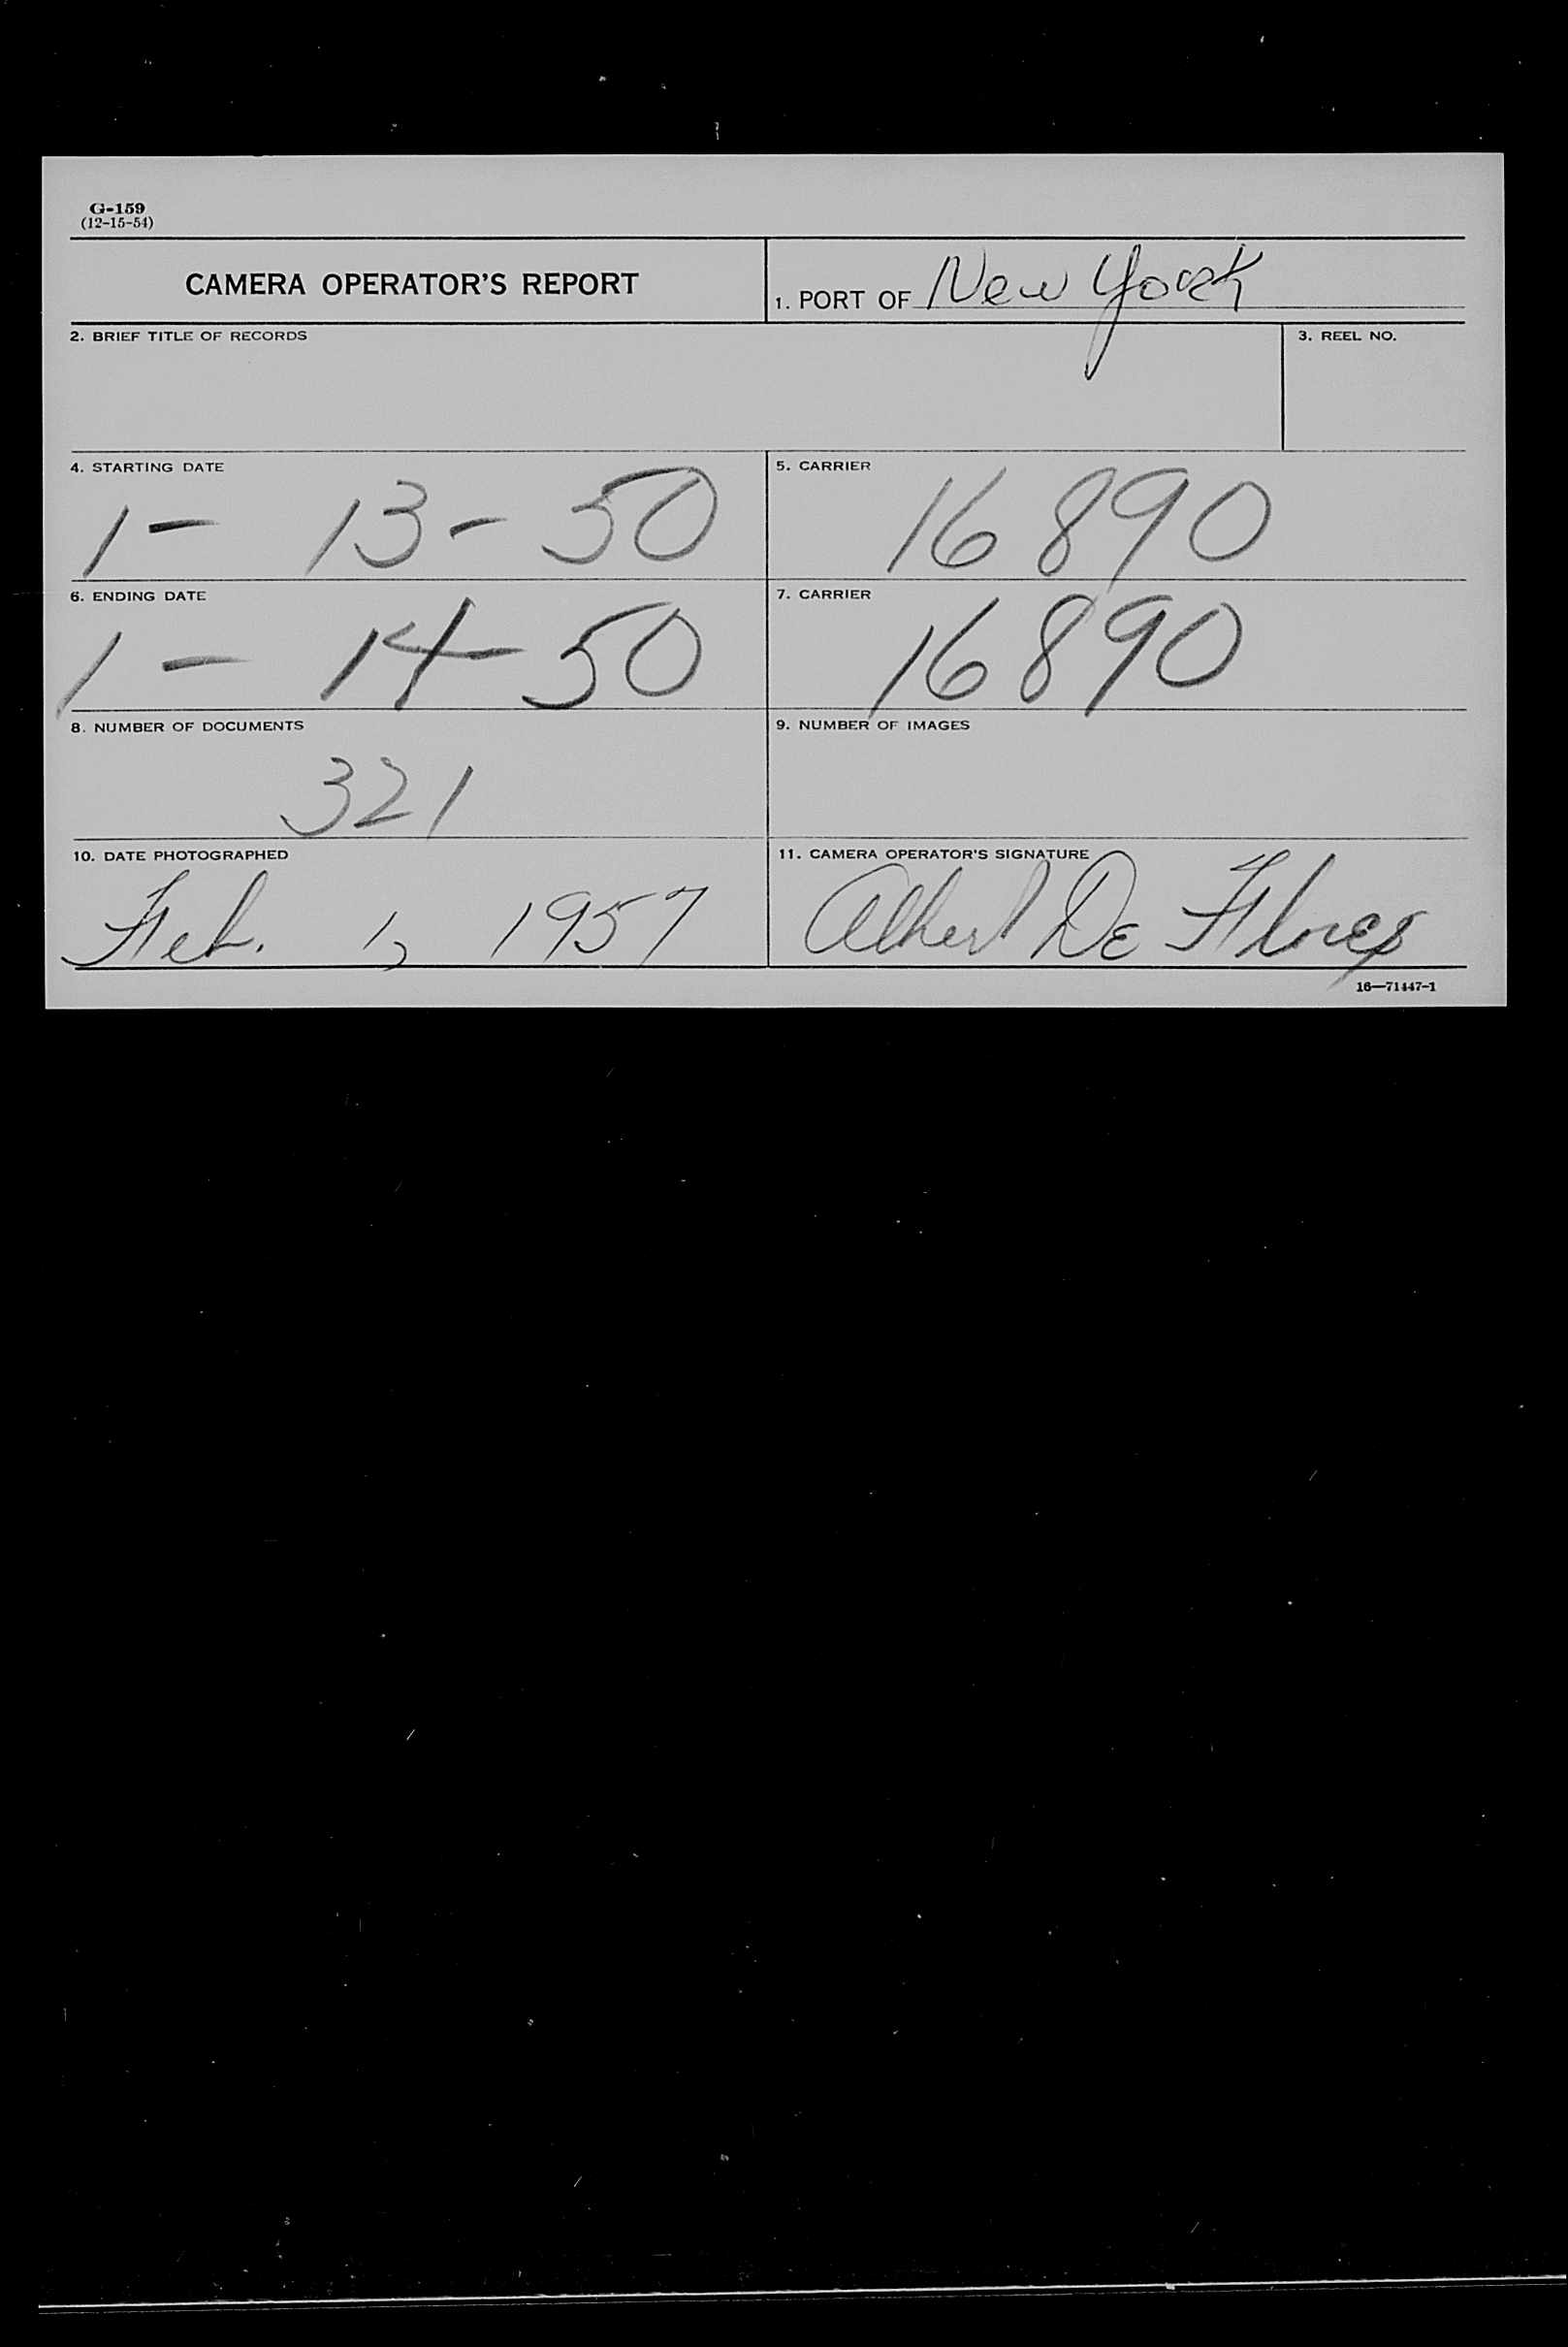 G-159
(12-15-54)
CAMERA OPERATOR'S REPORT
1. PORT OF New York
2. BRIEF TITLE OF RECORDS
3. REEL NO.
4. STARTING DATE
1 - 13 - 50
5. CARRIER
16890
6. ENDING DATE
1 - 14 - 50
7. CARRIER
16890
8. NUMBER OF DOCUMENTS
321
9. NUMBER OF IMAGES
10. DATE PHOTOGRAPHED
Feb. 1, 1957
11. CAMERA OPERATOR'S SIGNATURE
Albert De Flores
16—71447-1